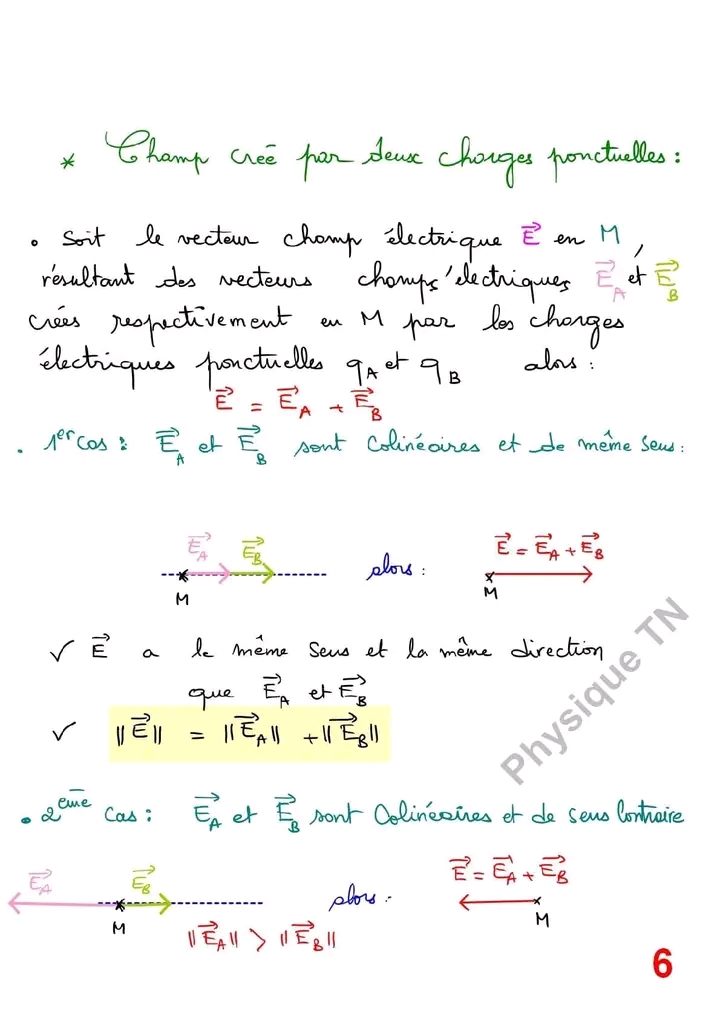 * Champ créé par deux charges ponctuelles :
• Soit le vecteur champ électrique E⃗ en M,
résultant des vecteurs champs électriques E⃗_A et E⃗_B
créés respectivement en M par les charges
électriques ponctuelles q_A et q_B alors :
E⃗ = E⃗_A + E⃗_B
• 1er cas : E⃗_A et E⃗_B sont Colinéaires et de même sens :
E⃗_A E⃗_B alors : E⃗ = E⃗_A + E⃗_B
M M
✓ E⃗ a le même sens et la même direction
que E⃗_A et E⃗_B
✓ ||E⃗|| = ||E⃗_A|| + ||E⃗_B||
Physique TN
• 2eme cas : E⃗_A et E⃗_B sont Colinéaires et de sens Contraire
E⃗_A E⃗_B alors : E⃗ = E⃗_A + E⃗_B
M M
||E⃗_A|| > ||E⃗_B||
6